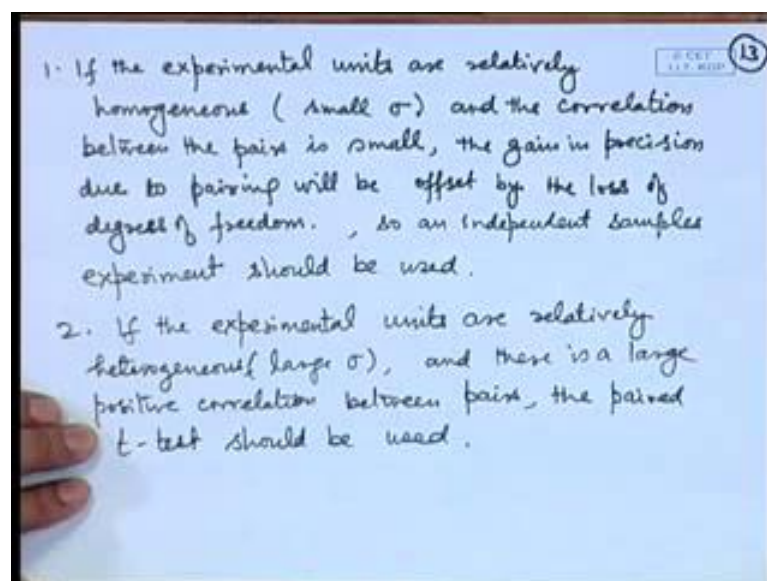 13
1. If the experimental units are relatively
homogeneous ( small σ) and the correlation
between the pairs is small, the gain in precision
due to pairing will be offset by the loss of
degrees of freedom. , so an independent samples
experiment should be used.
2. If the experimental units are relatively
heterogeneous( large σ), and there is a large
positive correlation between pairs, the paired
t-test should be used.